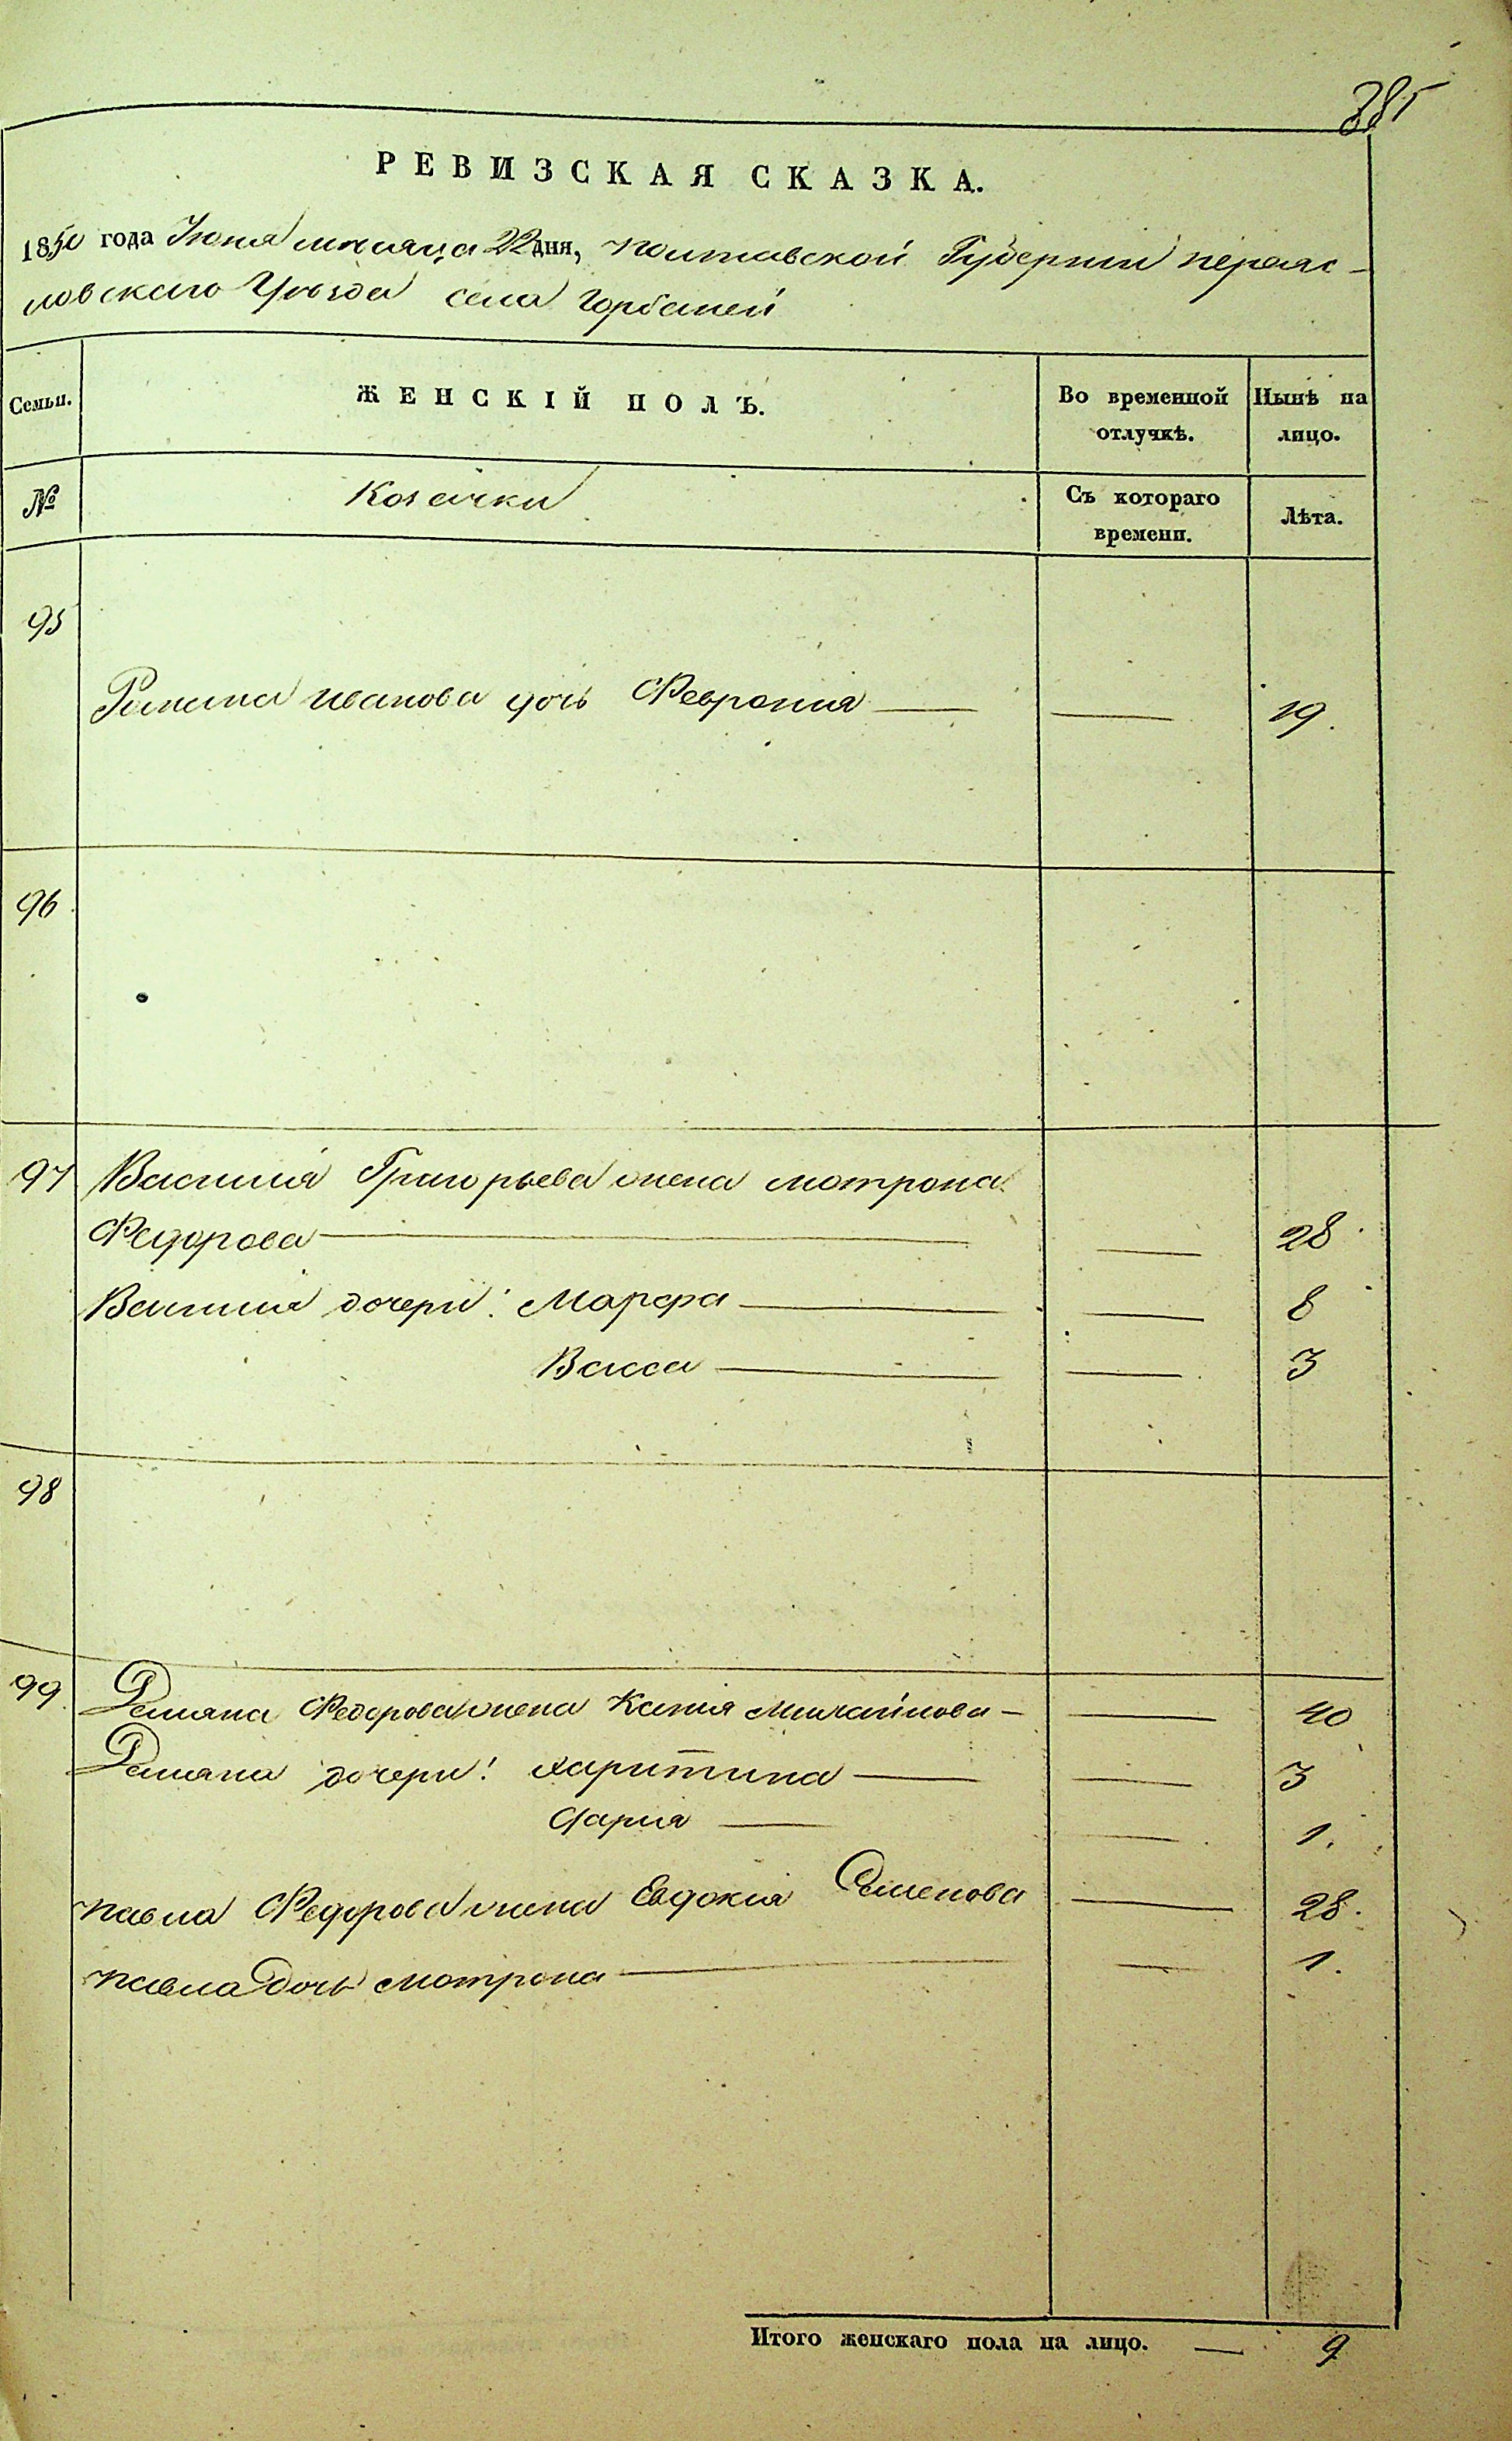 385
РЕВИЗСКАЯ СКАЗКА.
1850 года Июня месяца 22 дня, Полтавской Губернии Переяс-
ловского Уѣзда села Горбаней
Семьи. ЖЕНСКІЙ ПОЛЪ. Во временной отлучкѣ. Нынѣ на лицо.
№ Козачки Съ котораго времени. Лѣта.
95
Романа Иванова дочь Феврония — — 19.
96
97 Василия Григорьева жена Мотрона
Федорова — — 28
Василия дочери: Марфа — — 8
Васса — — 3
98
99. Демяна Федорова жена Ксения Михайлова — — 40
Демяна дочери: Харитина — — 3
Дария — — 1.
Павла Федорова жена Евдокия Семенова — 28.
Павла дочь Мотрона — — 1.
Итого женскаго пола на лицо. — 9